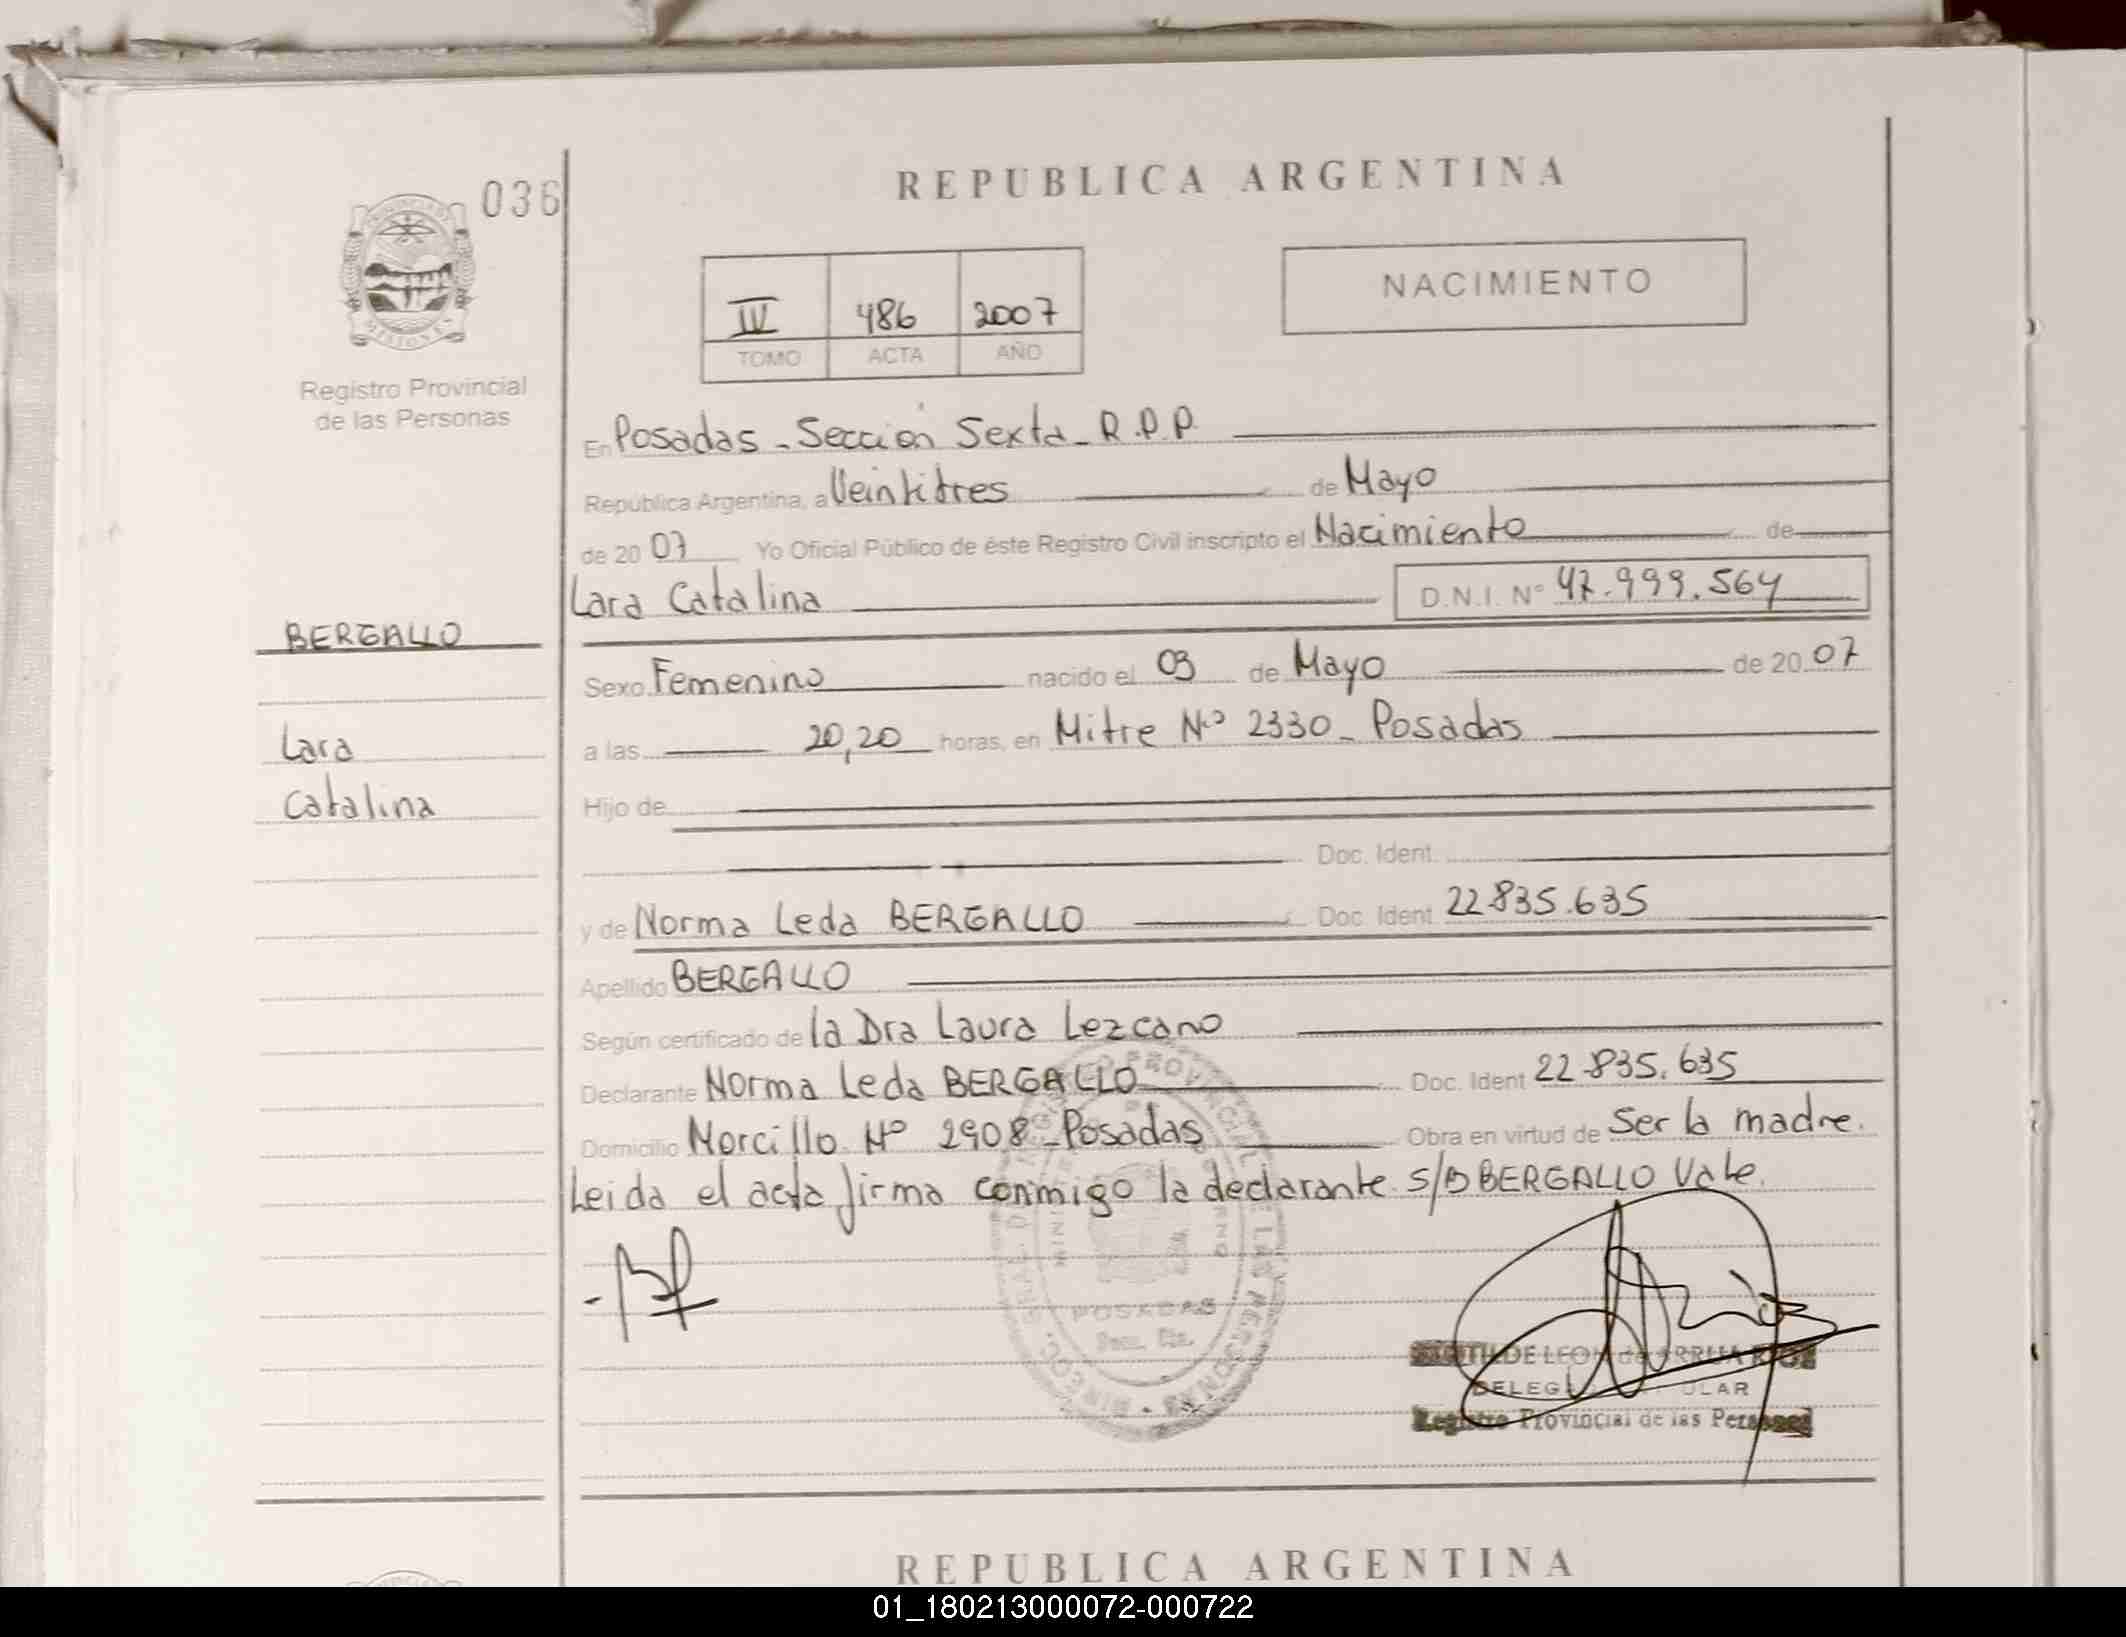 036
REPUBLICA ARGENTINA
MISIONES
Registro Provincial
de las Personas
IV 486 2007
TOMO ACTA AÑO
NACIMIENTO
En Posadas - Sección Sexta - R.P.P.
República Argentina, a Veintitres de Mayo
de 20 07 Yo Oficial Público de éste Registro Civil inscripto el Nacimiento de
Lara Catalina D.N.I. Nº 47.999.564
BERGALLO
Sexo Femenino nacido el 03 de Mayo de 20 07
Lara
a las 20,20 horas, en Mitre Nº 2330 - Posadas
Catalina
Hijo de
Doc. Ident.
y de Norma Leda BERGALLO Doc. Ident. 22.835.635
Apellido BERGALLO
Según certificado de la Dra Laura Lezcano
Declarante Norma Leda BERGALLO Doc. Ident 22.835.635
Domicilio Morcillo Nº 2908 - Posadas Obra en virtud de Ser la madre.
Leida el acta firma conmigo la declarante S/B BERGALLO Vale.
POSADAS
LEON de ARRUA RIOS
Registro Provincial de las Personas
REPUBLICA ARGENTINA
01_180213000072-000722